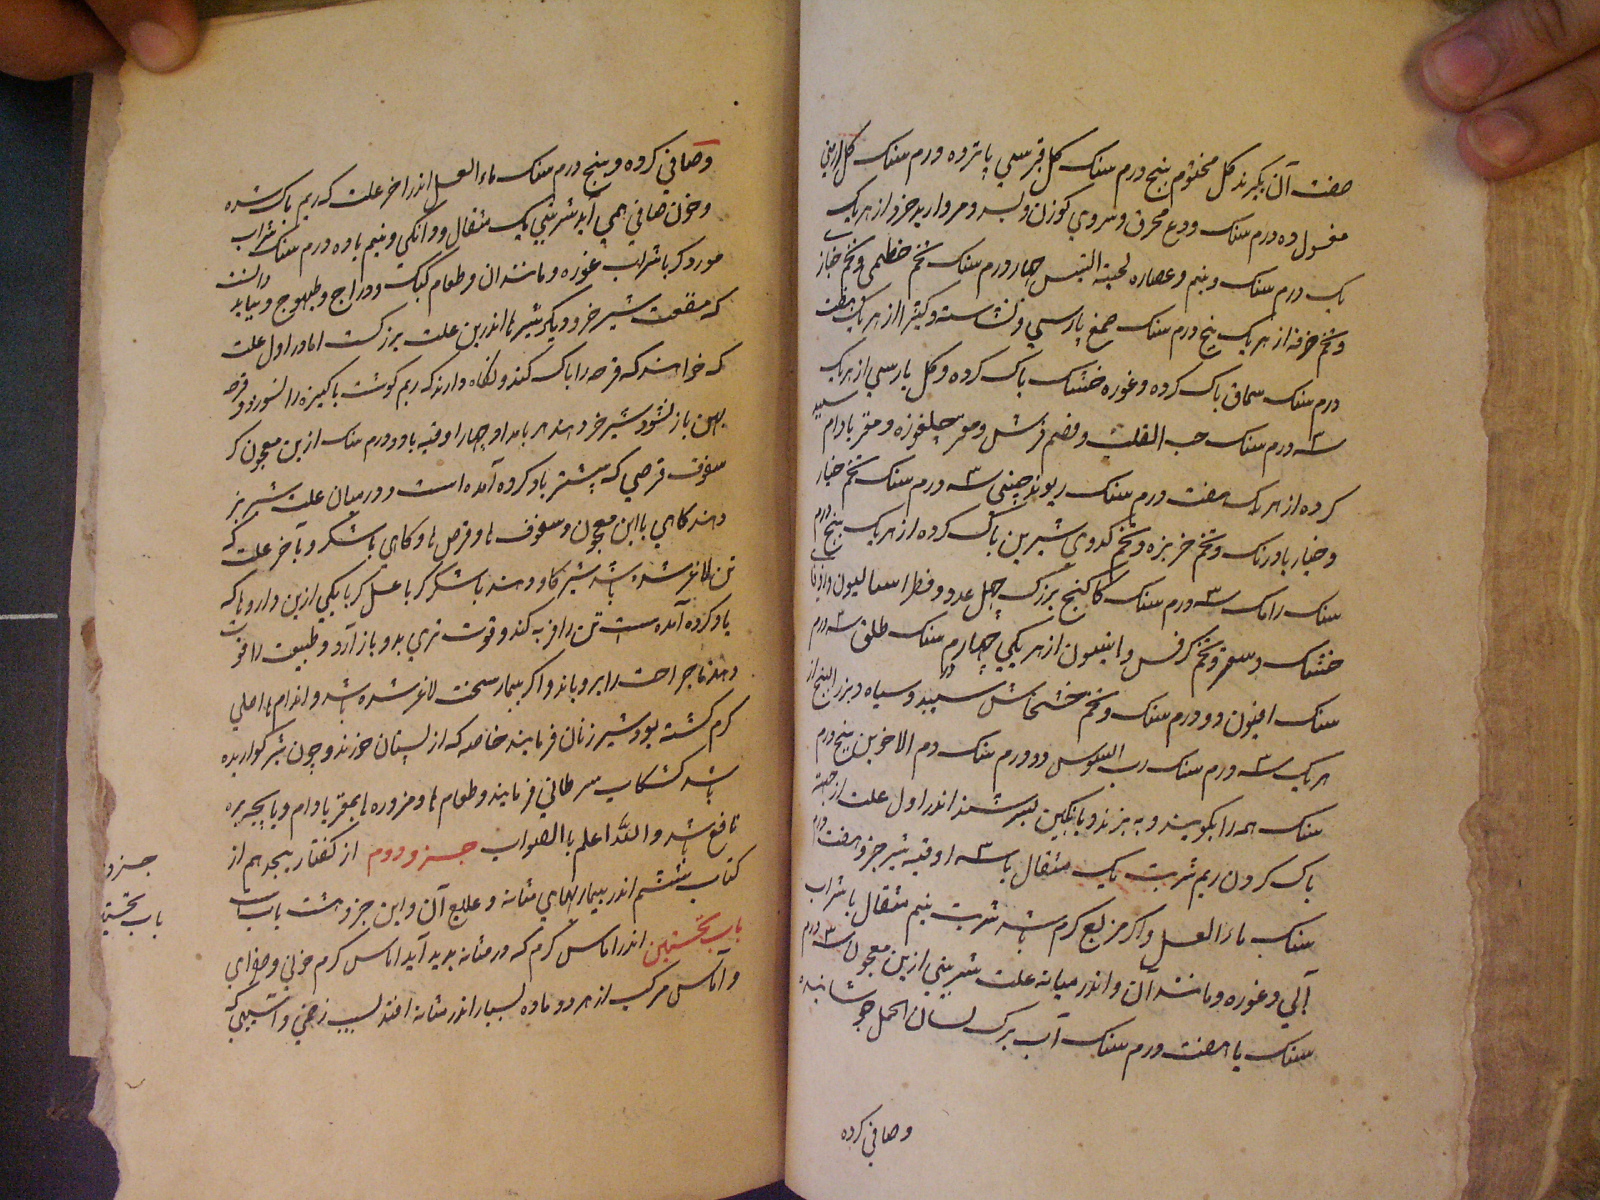 صفت آن بکیرند کل مختوم پنج درم سنک کل قبرسی پانزده درم سنک کل ارمنی
مغسول ده درم سنک ودع محرق و سروی کوزن و بسد و مروارید خرد از هر یک
یک درم سنک و نیم و عصاره لحیة التیس چهار درم سنک تخم خطمی و تخم خبازی
و تخم خرفه از هر یک پنج درم سنک صمغ پارسی و نشاسته و کتیرا از هر یک هفت
درم سنک سماق پاک کرده و غوره خشک پاک کرده و کل پارسی از هر یک
سه درم سنک حب القلت و فضم قرش و مغز چلغوزه و مغز بادام سپید
کرده از هر یک هفت درم سنک ریوند چینی سه درم سنک تخم خیار
و خیار بادرنک و تخم خربزه و تخم کدوی شیرین پاک کرده از هر یک پنج درم
سنک رامک سه درم سنک کاکنج بزرک چهل عدد و فطراسالیون
خشک و سعتر و تخم کرفس و انیسون از هر یکی چهار درم سنک طلق سه درم
سنک افیون دو درم سنک و تخم خشخاش سپید و سیاه و بزر البنج از
هر یک سه درم سنک رب السوس دو درم سنک دم الاخوین پنج درم
سنک همه را بکوبند و به بیزند و بانکبین بسرشند اندر اول علت از جهة
پاک کردن ریم شربت یک مثقال با سه اوقیه شیر خر و هفت درم
سنک ماء العسل و اکر مزاج کرم باشد شربت نیم مثقال با شراب
آبی و غوره و مانند آن و اندر میانه علت شربتی ازین معجون سه درم
سنک با هفت درم سنک آب برک لسان الحمل جوشانیده
و صافی کرده
و صافی کرده و پنج درم سنک ماء العسل اندر اخر علت که ریم پاک شده
و خون صافی همی آید شربتی یک مثقال و دانکی و نیم با ده درم سنک شراب
مورد کر با شراب غوره و مانند ان و طعام کبک و دراج و طیهوج و بباید دانست
که منفعت شیر خر و دیکر شیرها اندرین علت بزرکست اما در اول علت
که خواهند که قرحه را پاک کنند و نکاه دارند که ریم کوشت پاکیزه را نسوزد و قرحه
پهن باز نشود شیر خر دهند هر بامداد چهار اوقیه با دو درم سنک ازین معجون کر
سفوف قرصی که پیشتر یاد کرده آمده است و در میان علت شیر بز
دهند کاهی با این معجون و سفوف ها و قرص ها و کاهی با شکر و باخر علت که
تن لاغر شده باشد شیر کاو دهند با شکر کر با عسل کر با یکی ازین داروها که
یاد کرده آمده ست تن را فربه کند و قوت تری بدو باز آرد و طبیعت را قوت
دهد تا جراحت را برویاند و اکر بیمار سخت لاغر شده باشد و اندام ها اصلی
کرم کشته بود شیر زنان فرمایند خاصه که از پستان خورند و چون شیر کواریده
باشد کشکاب سرطانی فرمایند و طعام ها و مزوره ها بمغز بادام و پاچه بره
نافع باشد و الله اعلم بالصواب جزو دوم از کفتار هجدهم از
کتاب ششم اندر بیماریهای مثانه و علاج آن و این جزو هشت باب است
باب نخستین اندر اماس کرم که در مثانه پدید آید اماس کرم خونی و صفرایی
و آماس مرکب از هر دو ماده بسیار اندر مثانه افتد لسبب زخمی و آسیبی که
جزو
باب نخستین